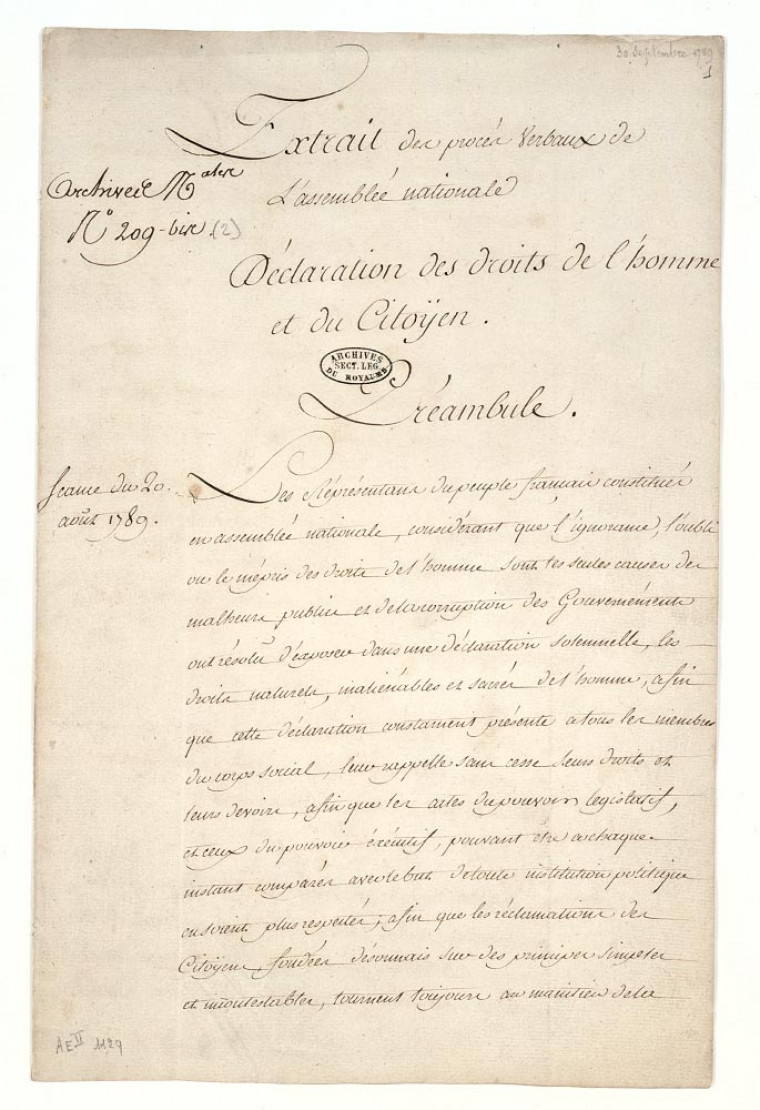 30 Septembre 1789
1
Extrait des procès Verbaux de
L'assemblée nationale
Archives
N° 209-bis. (2)
Déclaration des droits de l'homme
et du Citoÿen.
ARCHIVES
SECT. LEG.
DU ROYAUME
Préambule.
Seance du 20.
août 1789.
Les Réprésentans du peuple francais constitués
en assemblée nationale, considérant que l'ignorance, l'oubli
ou le mépris des droits de l'homme sont les seules causes des
malheurs publics et de la corruption des Gouvernéments
ont résolu d'exposer dans une déclaration solemnelle, les
droits naturels, inaliénables et sacrés de l'homme, afin
que cette déclaration constament présente a tous les membres
du corps social, leur rappelle sans cesse leurs droits et
leurs devoirs, afin que les actes du pouvoir legislatif,
et ceux du pouvoir éxécutif, pouvant être a chaque
instant comparés avec le but de toute institution politique
en soient plus respectés; afin que les réclamations des
Citoÿens, fondées désormais sur des principes simples
et incontestables, tournent toujours au maintien de la
AE II 1129